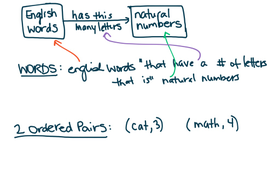 English words
has this many letters
natural numbers
WORDS: english words "that have a # of letters
that is" natural numbers
2 Ordered Pairs: (cat, 3) (math, 4)